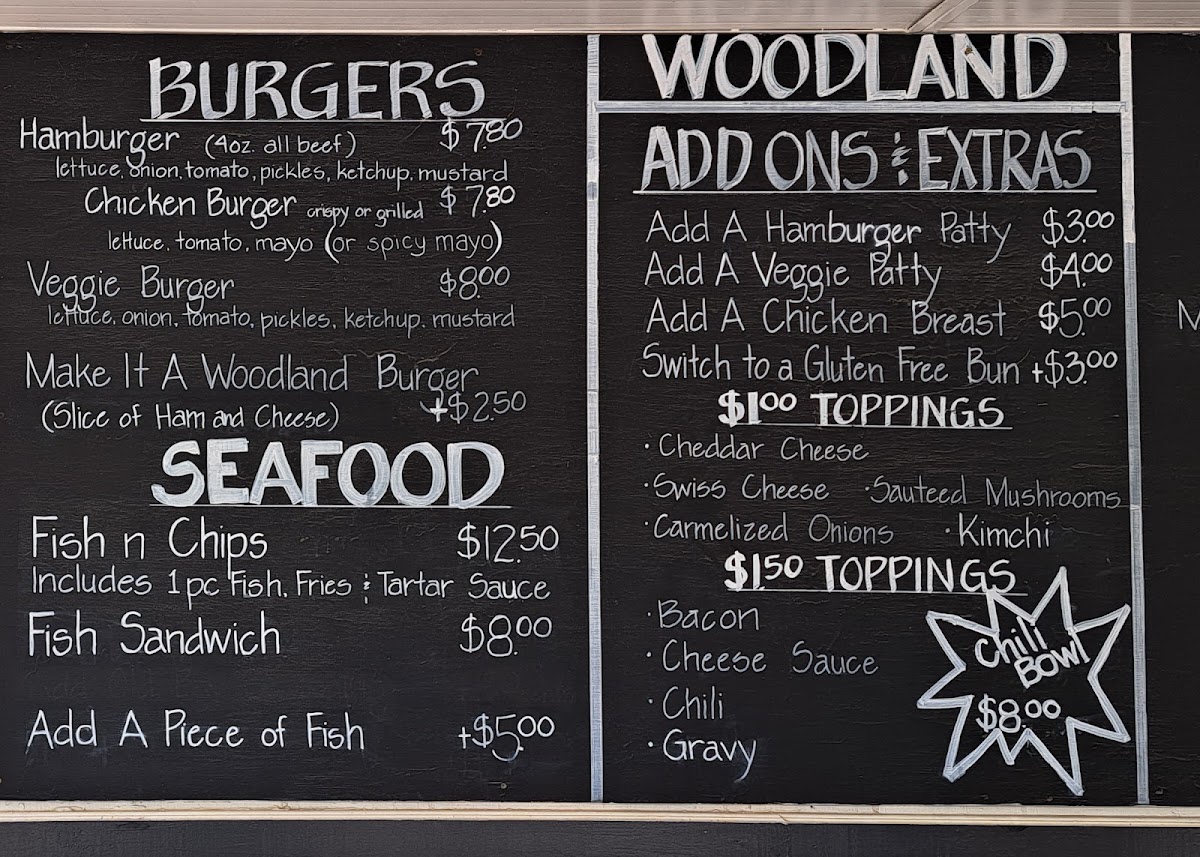 BURGERS
Hamburger (4oz. all beef) $7.80
lettuce, onion, tomato, pickles, ketchup, mustard
Chicken Burger crispy or grilled $7.80
lettuce, tomato, mayo (or spicy mayo)
Veggie Burger $8.00
lettuce, onion, tomato, pickles, ketchup, mustard
Make It A Woodland Burger
(Slice of Ham and Cheese) +$2.50
SEAFOOD
Fish n Chips $12.50
Includes 1pc Fish, Fries & Tartar Sauce
Fish Sandwich $8.00
Add A Piece of Fish +$5.00
WOODLAND
ADD ONS & EXTRAS
Add A Hamburger Patty $3.00
Add A Veggie Patty $4.00
Add A Chicken Breast $5.00
Switch to a Gluten Free Bun +$3.00
$1.00 TOPPINGS
· Cheddar Cheese
· Swiss Cheese · Sauteed Mushrooms
· Carmelized Onions · Kimchi
$1.50 TOPPINGS
· Bacon
· Cheese Sauce
· Chili
· Gravy
Chili
Bowl
$8.00
M